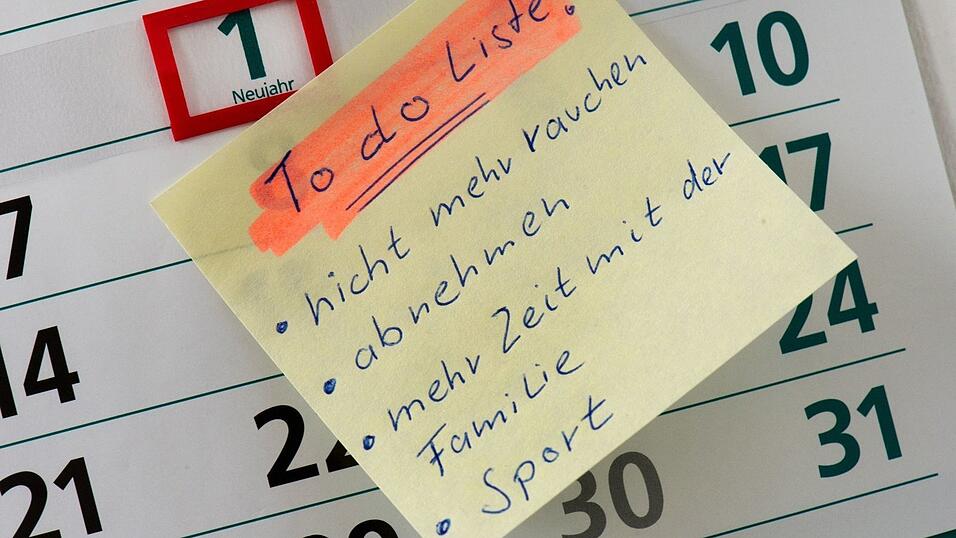 1
Neujahr
To do Liste:
• nicht mehr rauchen
• abnehmen
• mehr Zeit mit der
Familie
• Sport
10
7
17
14
24
21
22
31
29
30